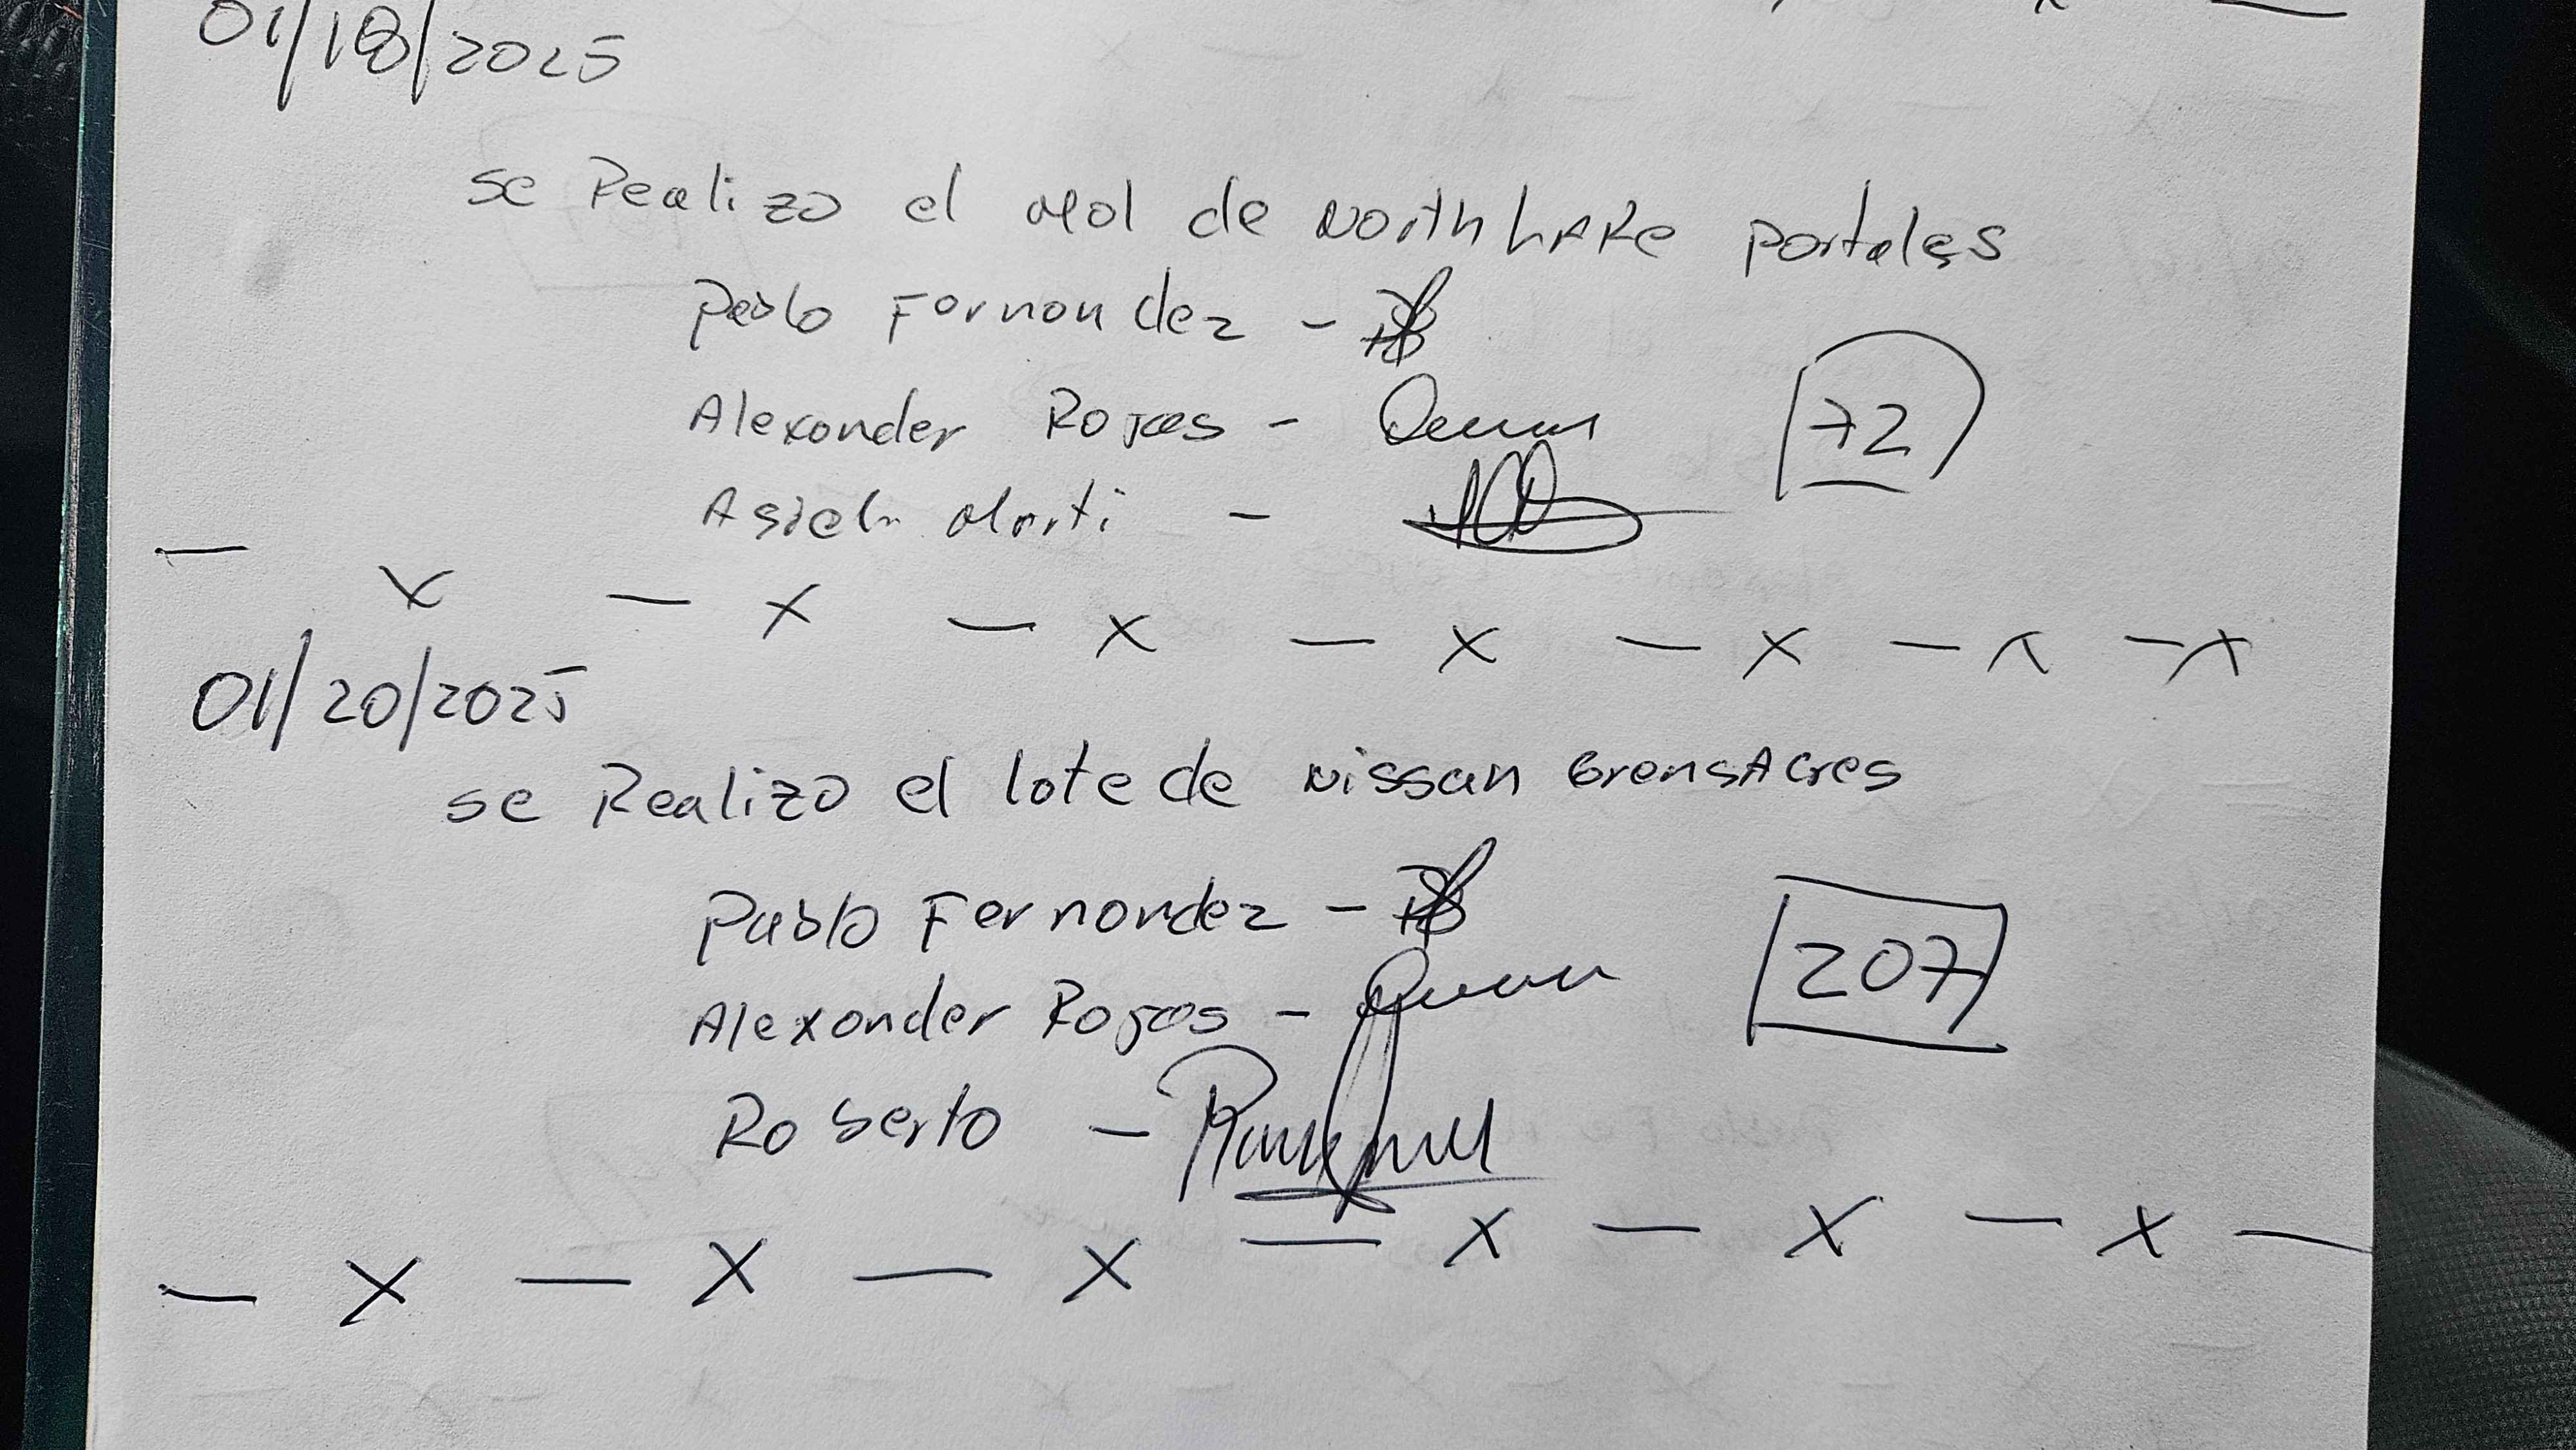 01/18/2025
se Realizo el Mol de NorthLAKe portales
Pablo Fernandez -
Alexander Rojas -
72
Asiel Marti -
- x - x - x - x - x - x - x
01/20/2025
se Realizo el lote de Nissan GrensAcres
Pablo Fernandez -
207
Alexander Rojas -
Roberto -
- x - x - x - x - x - x -